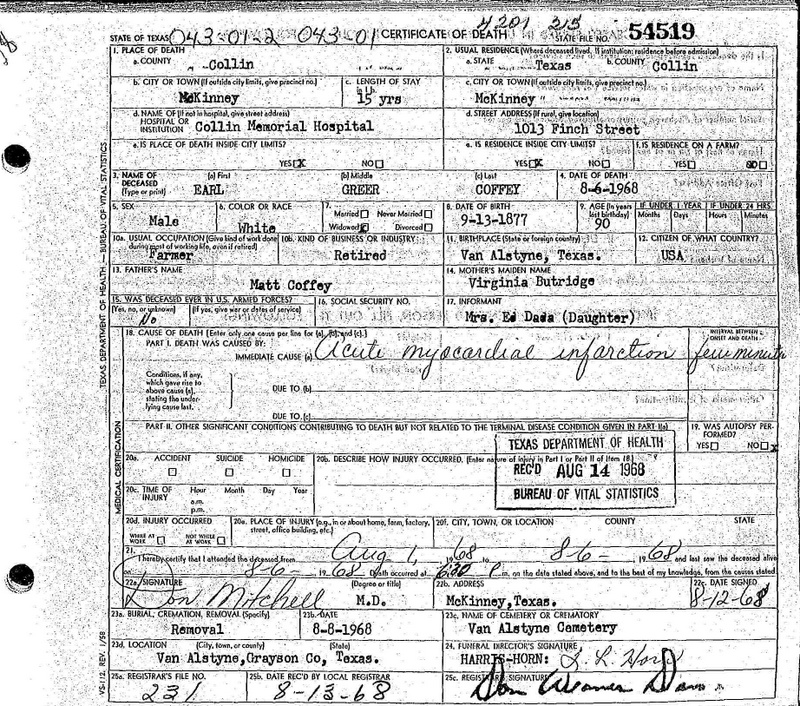 043-01-2 043-01 4201 215
STATE OF TEXAS CERTIFICATE OF DEATH STATE FILE NO. 54519
1. PLACE OF DEATH
a. COUNTY Collin
2. USUAL RESIDENCE (Where deceased lived. If institution: residence before admission)
a. STATE Texas b. COUNTY Collin
b. CITY OR TOWN (If outside city limits, give precinct no.) McKinney
c. LENGTH OF STAY in 1 b. 15 yrs
c. CITY OR TOWN (If outside city limits, give precinct no.) McKinney
d. NAME OF (If not in hospital, give street address) HOSPITAL OR INSTITUTION Collin Memorial Hospital
d. STREET ADDRESS (If rural, give location) 1013 Finch Street
e. IS PLACE OF DEATH INSIDE CITY LIMITS? YES X NO
e. IS RESIDENCE INSIDE CITY LIMITS? YES X NO
f. IS RESIDENCE ON A FARM? YES NO
3. NAME OF DECEASED (Type or print) (a) First EARL (b) Middle GREER (c) Last COFFEY
4. DATE OF DEATH 8-6-1968
5. SEX Male
6. COLOR OR RACE White
7. Married Never Married Widowed X Divorced
8. DATE OF BIRTH 9-13-1877
9. AGE (In years last birthday) 90
IF UNDER 1 YEAR Months Days IF UNDER 24 HRS. Hours Minutes
10a. USUAL OCCUPATION (Give kind of work done during most of working life, even if retired) Farmer
10b. KIND OF BUSINESS OR INDUSTRY Retired
11. BIRTHPLACE (State or foreign country) Van Alstyne, Texas.
12. CITIZEN OF WHAT COUNTRY? USA
13. FATHER'S NAME Matt Coffey
14. MOTHER'S MAIDEN NAME Virginia Butridge
15. WAS DECEASED EVER IN U.S. ARMED FORCES? (Yes, no, or unknown) (If yes, give war or dates of service) No
16. SOCIAL SECURITY NO.
17. INFORMANT Mrs. Ed Dada (Daughter)
18. CAUSE OF DEATH [Enter only one cause per line for (a), (b), and (c).]
INTERVAL BETWEEN ONSET AND DEATH
PART I. DEATH WAS CAUSED BY:
IMMEDIATE CAUSE (a) Acute myocardial infarction few minutes
Conditions, if any, which gave rise to above cause (a), stating the underlying cause last.
DUE TO (b)
DUE TO (c)
PART II. OTHER SIGNIFICANT CONDITIONS CONTRIBUTING TO DEATH BUT NOT RELATED TO THE TERMINAL DISEASE CONDITION GIVEN IN PART I(a)
19. WAS AUTOPSY PERFORMED? YES NO X
20a. ACCIDENT SUICIDE HOMICIDE
20b. DESCRIBE HOW INJURY OCCURRED. (Enter nature of injury in Part I or Part II of Item 18.)
TEXAS DEPARTMENT OF HEALTH
REC'D AUG 14 1968
BUREAU OF VITAL STATISTICS
20c. TIME OF INJURY Hour Month Day Year
a.m.
p.m.
20d. INJURY OCCURRED WHILE AT WORK NOT WHILE AT WORK
20e. PLACE OF INJURY (e.g., in or about home, farm, factory, street, office building, etc.)
20f. CITY, TOWN, OR LOCATION COUNTY STATE
21. I hereby certify that I attended the deceased from Aug 1, 1968 to 8-6- 1968 and last saw the deceased alive
on 8-6- 1968 Death occurred at 6:30 P m. on the date stated above, and to the best of my knowledge, from the causes stated.
22a. SIGNATURE (Degree or title) Don Mitchell M.D.
22b. ADDRESS McKinney, Texas.
22c. DATE SIGNED 8-12-68
23a. BURIAL, CREMATION, REMOVAL (Specify) Removal
23b. DATE 8-8-1968
23c. NAME OF CEMETERY OR CREMATORY Van Alstyne Cemetery
23d. LOCATION (City, town, or county) (State) Van Alstyne, Grayson Co, Texas.
24. FUNERAL DIRECTOR'S SIGNATURE HARRIS-HORN:
25a. REGISTRAR'S FILE NO. 231
25b. DATE REC'D BY LOCAL REGISTRAR 8-13-68
25c. REGISTRAR'S SIGNATURE
TEXAS DEPARTMENT OF HEALTH — BUREAU OF VITAL STATISTICS
MEDICAL CERTIFICATION
VS-112, REV. 1/58